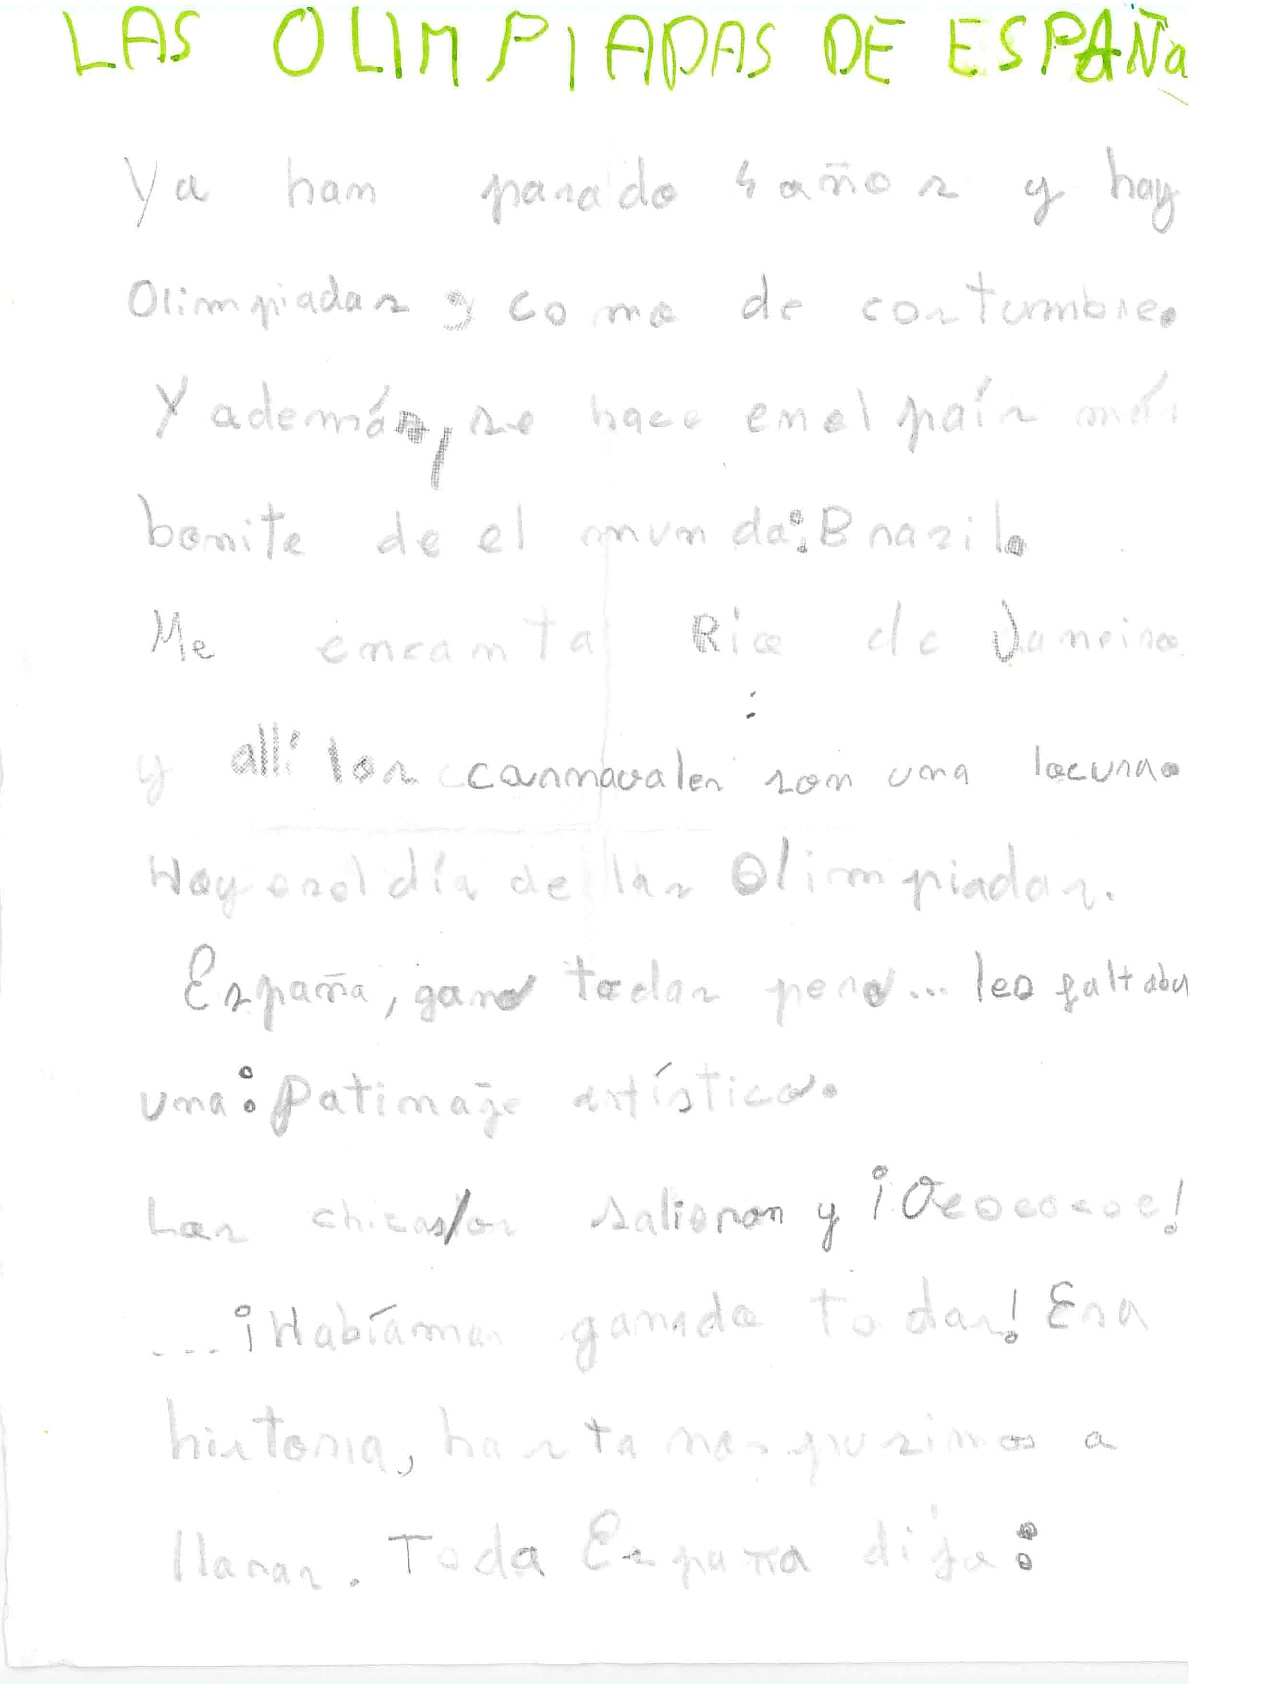 LAS OLIMPIADAS DE ESPAÑa
Ya han pasado 4 años y hay
Olimpiadas y como de costumbre.
Y además, se hace en el país más
bonito de el mundo: Brasil.
Me encanta Rio de Janeiro
y allí los carnavales son una locura.
Hoy es el día de las Olimpiadas.
España, gano todas pero... leo faltaba
una: Patinaje artístico.
Las chicas/os salieron y ¡Oeoeoeoe!
...¡Habíamos ganado todas! Era
historia, hasta nos pusimos a
llorar. Toda España dijo: